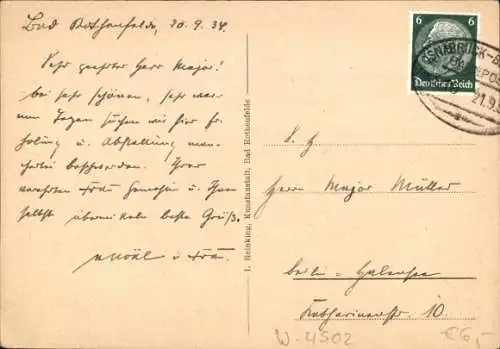 Bad Rothenfelde, 20.9.34.
Sehr geehrter Herr Major!
bei sehr schönem, sehr war-
men Tagen suchen wir hier Er-
holung u. Abstellung man-
cherlei Beschwerden. Ihrer
verehrten Frau Gemahlin u. Ihnen
selbst übermitteln beste Grüße.
u. Frau.
I. Reinking, Kunstanstalt, Bad Rothenfelde
6 6
Deutsches Reich
OSNABRÜCK-B
BAHNPOS
21.9.3
S. H.
Herrn Major Müller
Berlin-Halensee
Katharinenstr. 10.
W-4502
€6,-